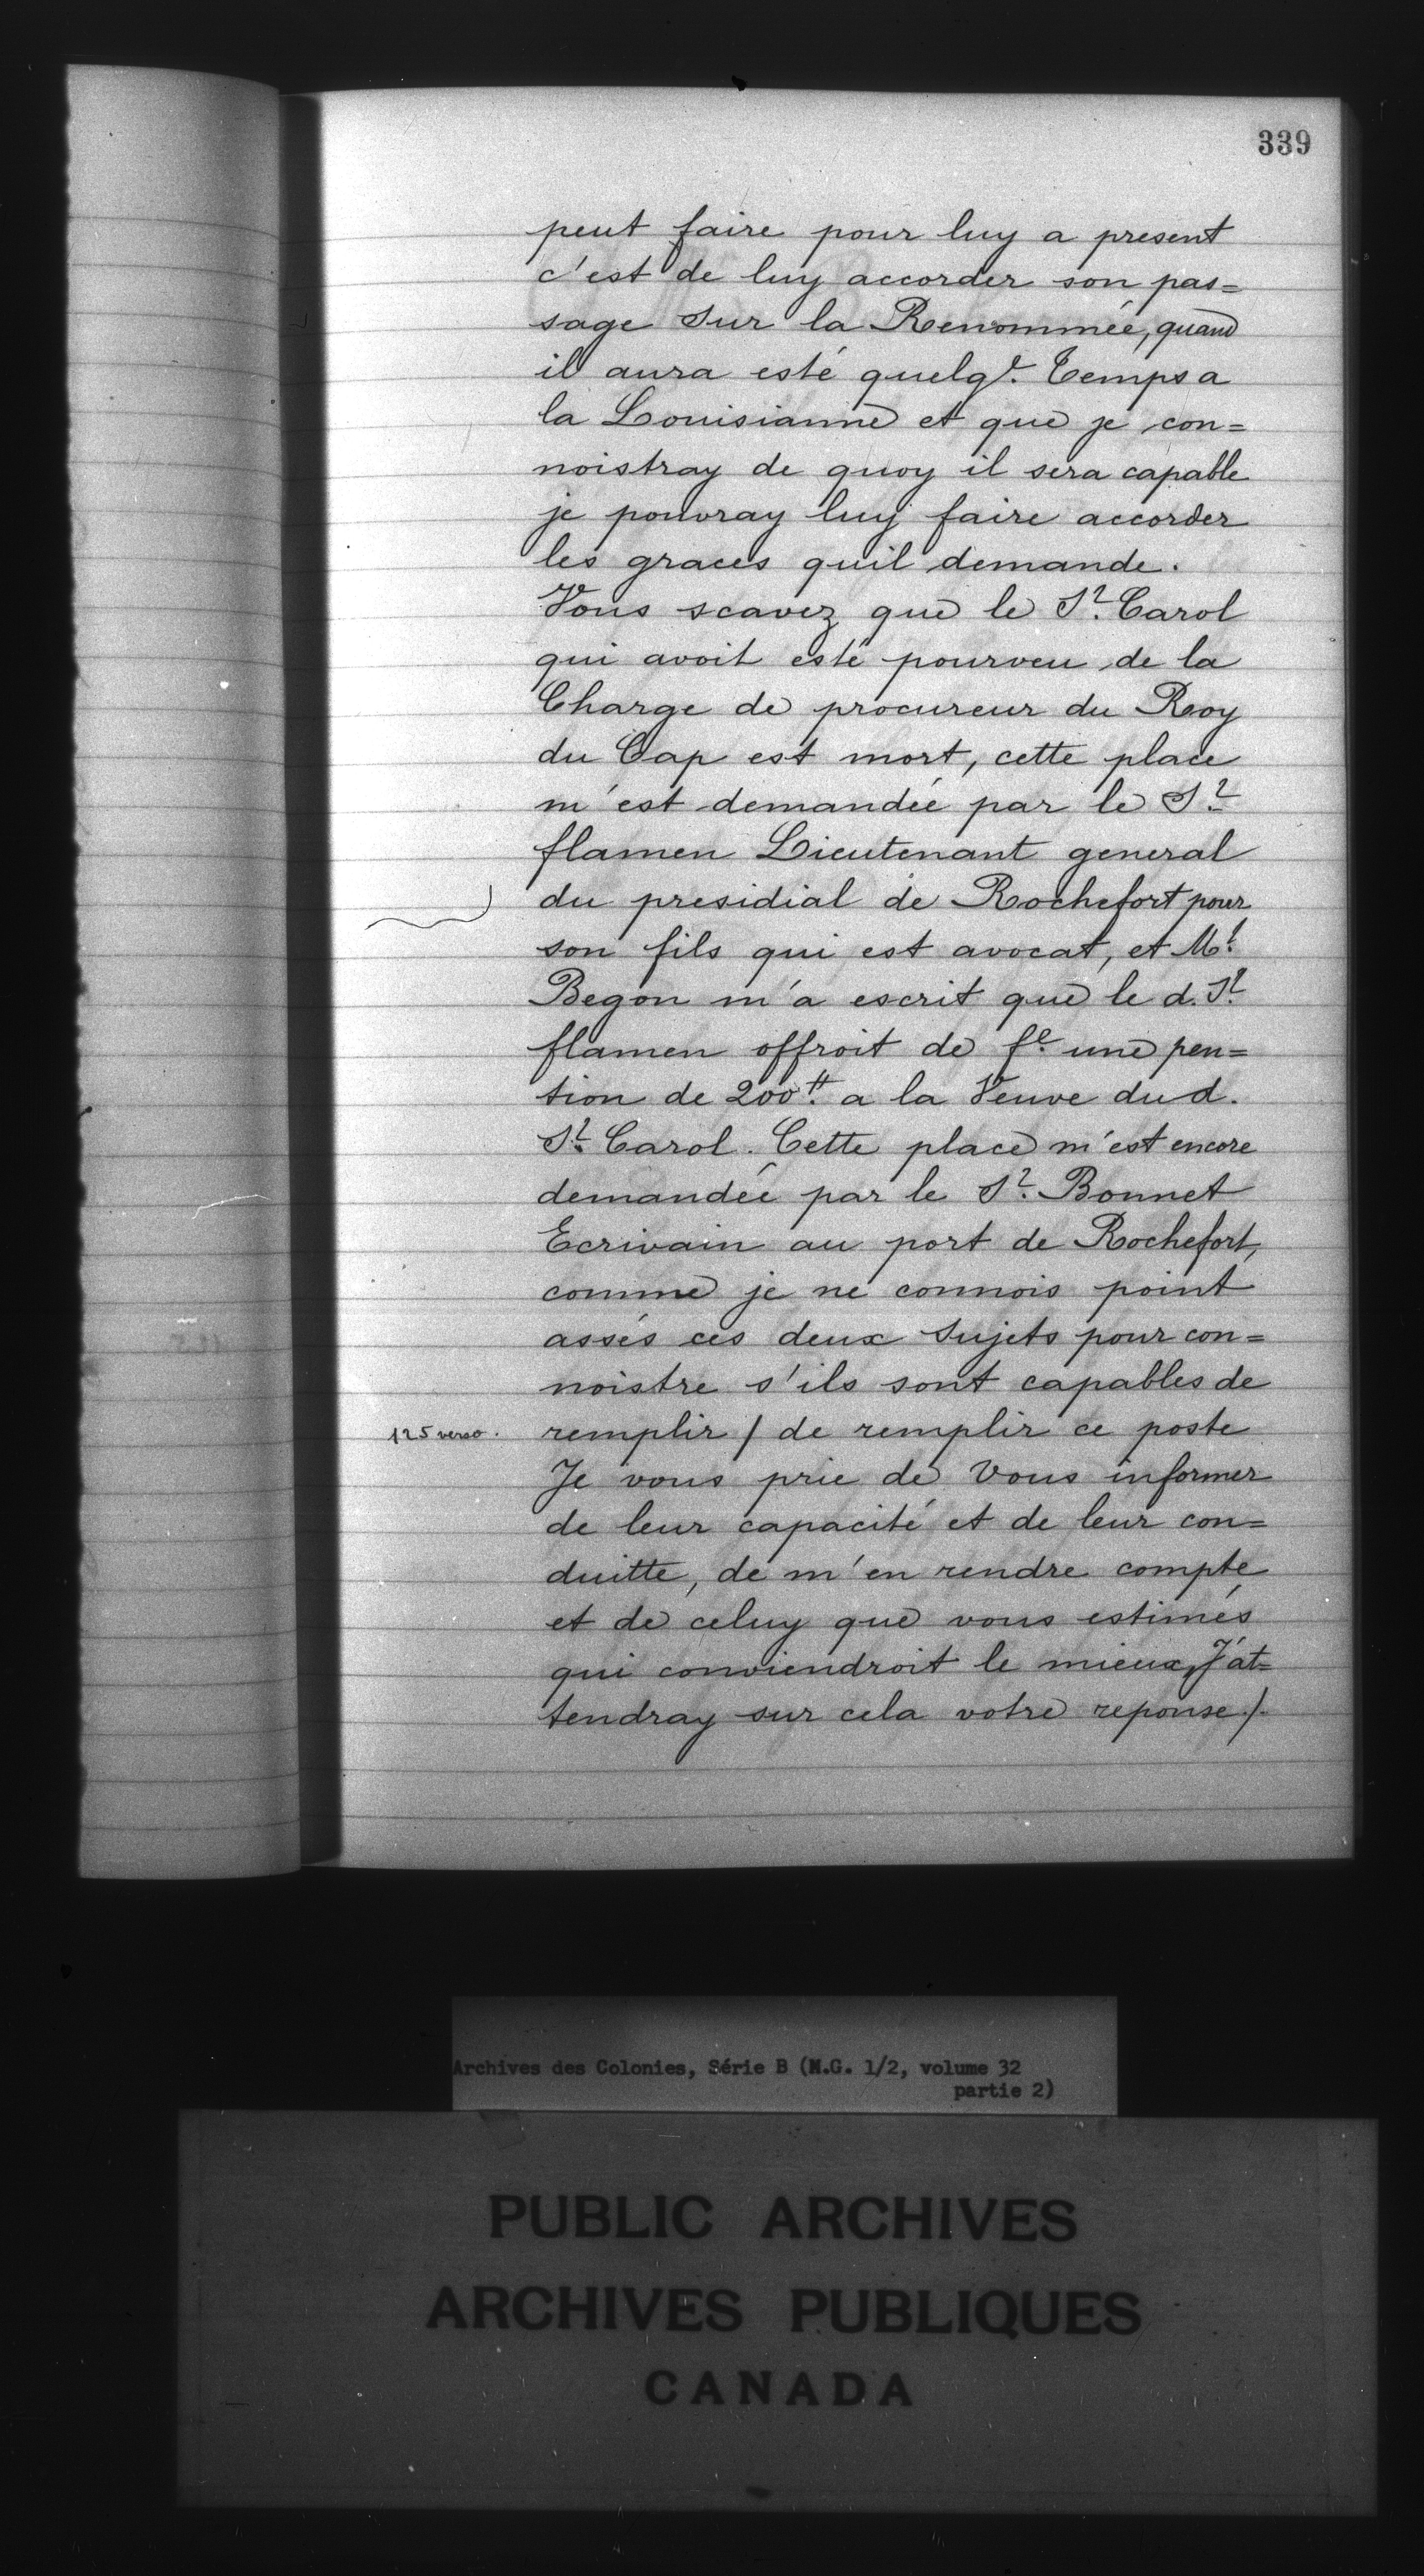 339
peut faire pour luy a present
c'est de luy accorder son pas=
sage sur la Renommée, quand
il aura esté quelqe. Temps a
la Louisianne et que je con=
noistray de quoy il sera capable
je pouvray luy faire accorder
les graces quil demande.
Vous scavez que le Sr. Carol
qui avoit esté pourveu de la
Charge de procureur du Roy
du Cap est mort, cette place
m'est demandée par le Sr.
flamen Lieutenant general
du presidial de Rochefort pour
son fils qui est avocat, et Mr.
Begon m'a escrit que le d. Sr.
flamen offroit de fe. une pen=
tion de 200tt. a la Veuve dud.
Sr. Carol. Cette place m'est encore
demandée par le Sr. Bonnet
Ecrivain au port de Rochefort,
comme je ne connois point
assés ces deux sujets pour con=
noistre s'ils sont capables de
125 verso. remplir / de remplir ce poste
Je vous prie de Vous informer
de leur capacité et de leur con=
duitte, de m'en rendre compte
et de celuy que vous estimés
qui conviendroit le mieux, J'at=
tendray sur cela votre reponse /.
Archives des Colonies, Série B (M.G. 1/2, volume 32
partie 2)
PUBLIC ARCHIVES
ARCHIVES PUBLIQUES
CANADA